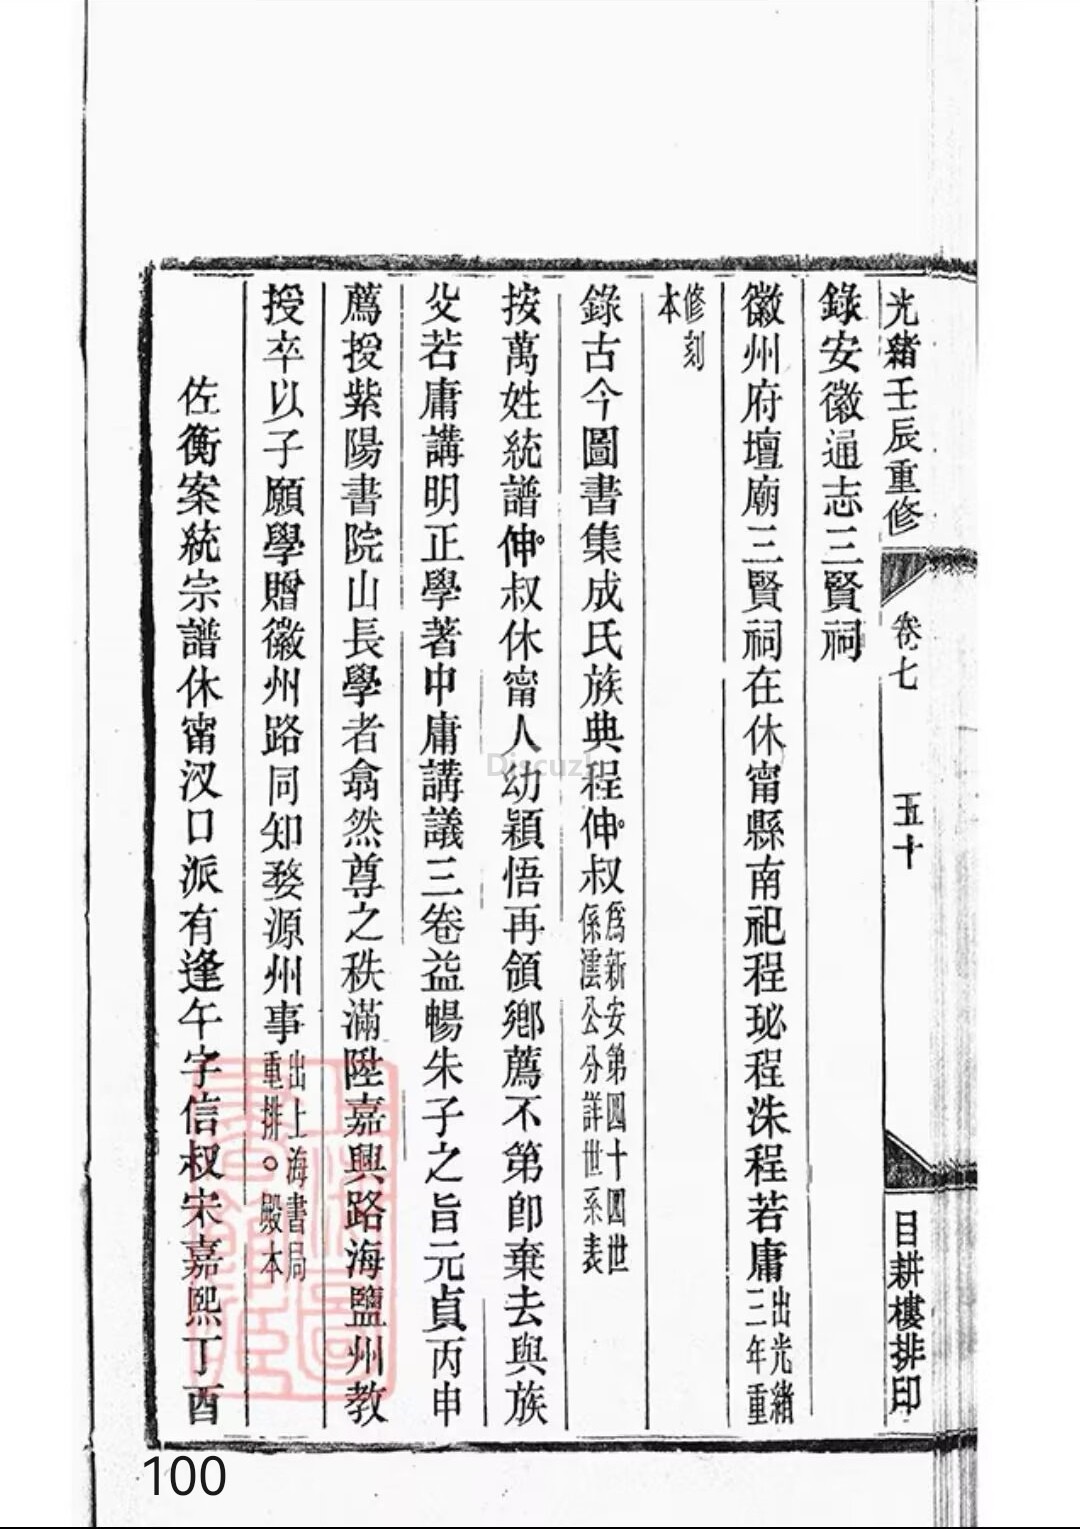 光緒壬辰重修
卷七
五十
目耕樓排印
錄安徽通志三賢祠
徽州府壇廟三賢祠在休甯縣南祀程珌程洙程若庸出光緒三年重
修刻本
錄古今圖書集成氏族典程伸叔爲新安第四十四世係澐公分詳世系表
按萬姓統譜伸叔休甯人幼穎悟再領鄉薦不第卽棄去與族
父若庸講明正學著中庸講議三卷益暢朱子之旨元貞丙申
薦授紫陽書院山長學者翕然尊之秩滿陞嘉興路海鹽州教
授卒以子願學贈徽州路同知婺源州事出上海書局重排。殿本
佐衡案統宗譜休甯汊口派有逢午字信叔宋嘉熙丁酉
Discuz!
100